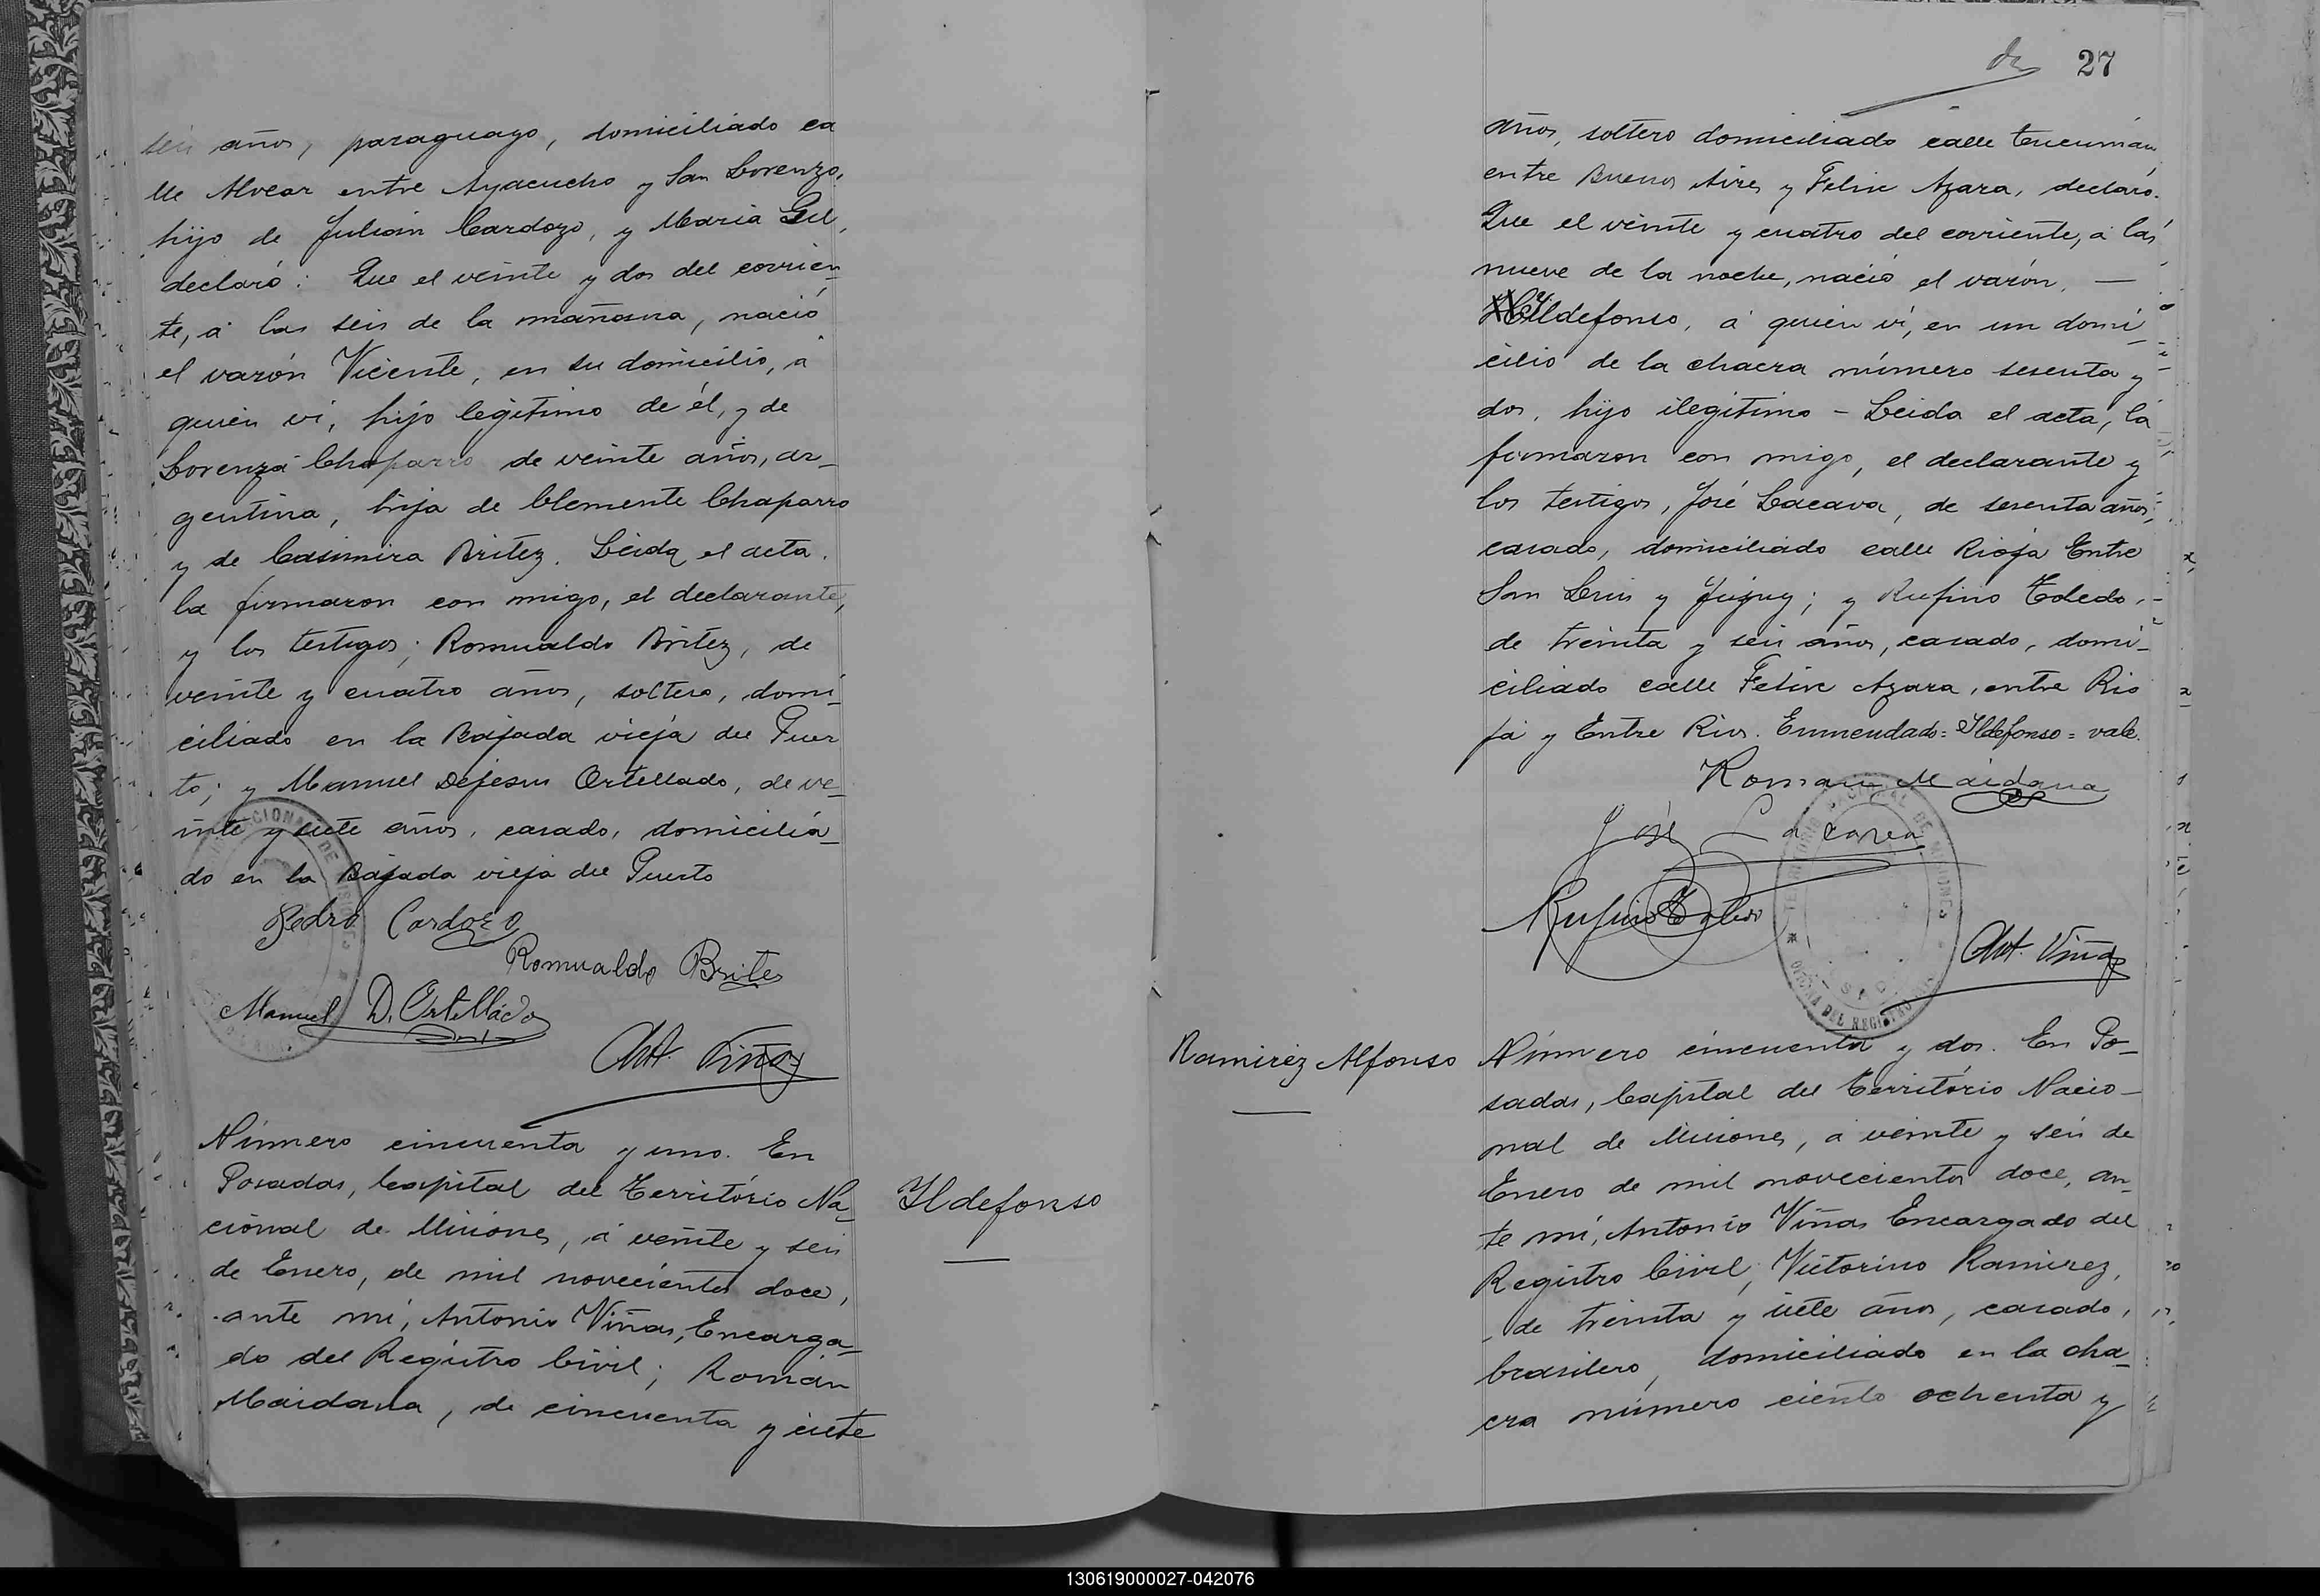 seis años, paraguayo, domiciliado ca
lle Alvear entre Ayacucho y San Lorenzo,
hijo de Julián Cardozo, y Maria Gil,
declaró: Que el veinte y dos del corrien_
te, á las seis de la mañana, nació
el varón Vicente, en su domicilio, á
quien ví, hijo legítimo de él, y de
Lorenza Chaparro de veinte años, ar_
gentina, hija de Clemente Chaparro
y de Casimira Britez. Leida el acta.
la firmaron con migo, el declarante,
y los testigos; Romualdo Britez, de
veinte y cuatro años, soltero, domi_
ciliado en la Bajada vieja del Puer
to; y Manuel Dejesus Ortellado, de ve_
inte y siete años, casado, domicilia_
do en la Bajada vieja del Puerto
Pedro Cardozo
Romualdo Brites
Manuel D. Ortellado
Ant. Viñas
Número cincuenta y uno. En
Posadas, Capital del Território Na_
cional de Misiones, á veinte y seis
de Enero, de mil novecientos doce,
ante mí, Antonio Viñas, Encarga_
do del Registro Civil; Román
Maidana, de cincuenta y siete
Ildefonso
27
años, soltero domiciliado calle Tucumán
entre Buenos Aires y Felix Azara, declaró.
Que el veinte y cuatro del corriente, á las
nueve de la noche, nació el varón. —
Ildefonso, á quien ví, en un domi_
cilio de la chacra número sesenta y
dos, hijo ilegítimo – Leida el acta, la
firmaron con migo, el declarante y
los testigos, José Lacava, de sesenta años,
casado, domiciliado calle Rioja Entre
San Luis y Jujuy; y Rufino Toledo,
de treinta y seis años, casado, domi_
ciliado calle Felix Azara, entre Rio
ja y Entre Rios. Enmendado=Ildefonso=vale.
Roman Maidana
José Lacava
Rufino Toledo
Ant. Viñas
Ramirez Alfonso
Número cincuenta y dos. En Po_
sadas, Capital del Território Nacio_
nal de Misiones, á veinte y seis de
Enero de mil novecientos doce, an_
te mí, Antonio Viñas Encargado del
Registro Civil, Victorino Ramirez,
de treinta y siete años, casado,
brasilero, domiciliado en la cha_
cra número ciento ochenta y
130619000027-042076